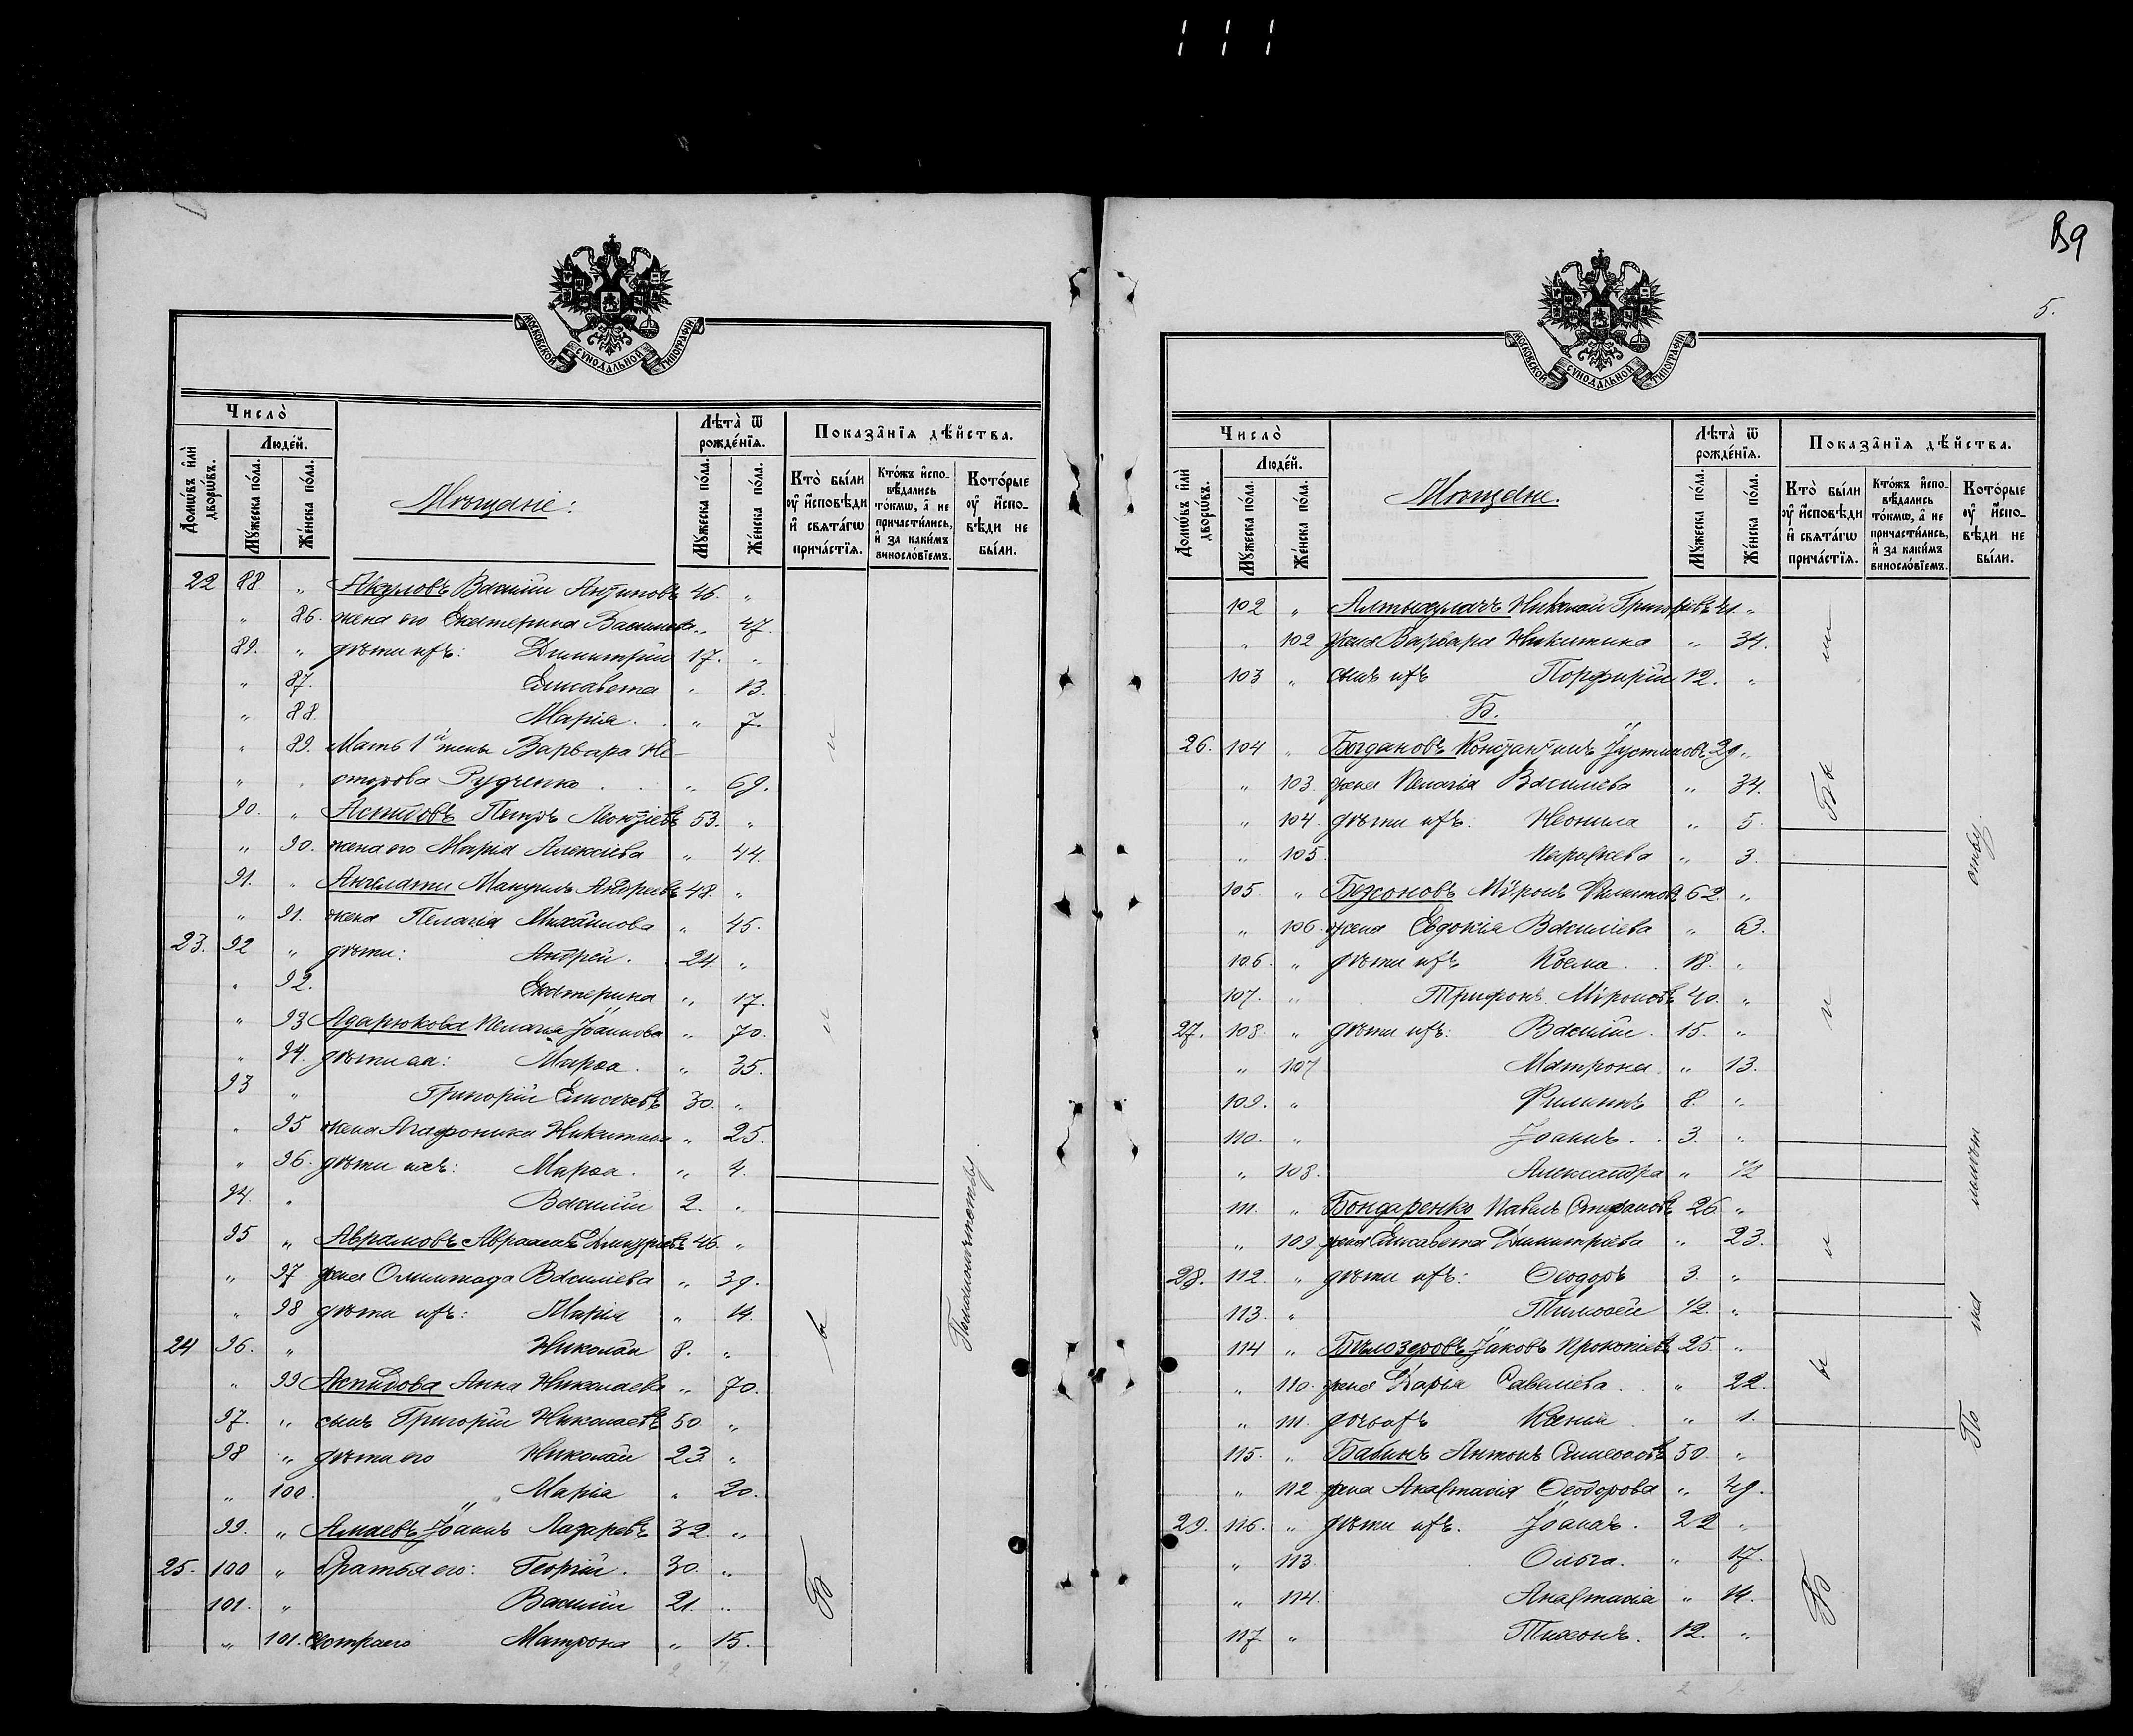 В9
5.
МОСКОВСКОЙ СѴНОДАЛЬНОЙ ТИПОГРАФІИ
Число̀
Домѡ́въ и҆лѝ дворѡ́въ.
Люде́й.
Мꙋ́жеска по́ла.
Же́нска по́ла.
Мѣщане:
Лѣта̀ ѿ рожде́нїѧ.
Мꙋ́жеска по́ла.
Же́нска по́ла.
Показа̑нїѧ дѣ́йства.
Кто̀ бы́ли ᲂу҆ и҆сповѣ́ди и҆ свѧта́гѡ прича́стїѧ.
Кто́жъ и҆сповѣ́дались то́кмѡ, а҆ не причасти́лись, и҆ за каки́мъ винносло́вїемъ.
Кото́рые ᲂу҆ и҆сповѣ́ди не бы́ли.
22 88 „ Акуловъ Василій Антиповъ 46. „
„ 86. жена его Екатерина Васильева „ 47.
89. „ дѣти ихъ: Димитрій 17. „
„ 87. Елисавета „ 13.
„ 88. Марія. „ 7.
„ 89. Мать 1й жены Варвара Не-
„ стерова Рудченко „ 69.
90. „ Аспидовъ Петръ Леонтіевъ 53. „
„ 90. жена его Марія Алексіева „ 44.
91. „ Ангелати Мануилъ Андреевъ 48. „
„ 91. жена Пелагія Михайлова „ 45.
23. 92 „ дѣти: Андрей. 24 „
„ 92. Екатерина „ 17.
„ 93 Адарюкова Пелагія Іоаннова „ 70.
„ 94. дѣти ея: Марѳа. „ 35.
93 „ Григорій Елисеевъ 30. „
„ 95 жена Агафоника Никитина „ 25.
„ 96. дѣти ихъ: Марѳа. „ 4.
94. „ Василій 2. „
95 „ Аврамовъ Авраамъ Димитріевъ 46. „
„ 97 жена Олимпіада Василіева „ 39.
„ 98 дѣти ихъ: Марія „ 14.
24 96. „ Николай 8. „
„ 99 Аспидова Анна Николаева „ 70.
97. „ сынъ Григорій Николаевъ 50 „
98 „ дѣти его Николай 23 „
„ 100. Марія „ 20.
99. „ Алмаевъ Іоаннъ Лазаревъ 32. „
25. 100 „ братья его: Георгій. 30. „
101. „ Василій 21. „
„ 101. Сестра его Матрона „ 15.
Б ы л и
По малолѣтству
МОСКОВСКОЙ СѴНОДАЛЬНОЙ ТИПОГРАФІИ
Число̀
Домѡ́въ и҆лѝ дворѡ́въ.
Люде́й.
Мꙋ́жеска по́ла.
Же́нска по́ла.
Мѣщане.
Лѣта̀ ѿ рожде́нїѧ.
Мꙋ́жеска по́ла.
Же́нска по́ла.
Показа̑нїѧ дѣ́йства.
Кто̀ бы́ли ᲂу҆ и҆сповѣ́ди и҆ свѧта́гѡ прича́стїѧ.
Кто́жъ и҆сповѣ́дались то́кмѡ, а҆ не причасти́лись, и҆ за каки́мъ винносло́вїемъ.
Кото́рые ᲂу҆ и҆сповѣ́ди не бы́ли.
102 „ Николай Григорьевъ 41 „
„ 102 жена Варвара Никитина „ 34.
103 „ сынъ ихъ Порфирій 12. „
Б.
26. 104 „ Богдановъ Константинъ Іустиновъ 29 „
„ 103. жена Пелагія Василіева „ 34.
„ 104. дѣти ихъ: Неонила „ 5.
„ 105. Параскева „ 3.
105. „ Бузоновъ Мѵронъ Филиповъ 62. „
„ 106. жена Евдокія Василіева „ 63.
106. „ дѣти ихъ Косма. 18. „
107. „ Трифонъ Мироновъ 40. „
27. 108. „ дѣти ихъ: Василій. 15. „
„ 107 Матрона „ 13.
109. „ Филиппъ 8. „
110. „ Іоаннъ. 3. „
„ 108. Александра „ 1/2
111. „ Бондаренко Павелъ Стефановъ 26 „
„ 109 жена Елисавета Димитріева „ 23.
28. 112. „ дѣти ихъ: Ѳеодоръ 3. „
113. „ Тимоѳей 1/2. „
114 „ Бѣлозеровъ Іаковъ Прокопіевъ 25. „
„ 110. жена Дарія Савелиева „ 22.
„ 111. дочь ихъ Ксенія „ 1.
115. „ Бабинъ Антонъ Симеоновъ 50. „
„ 112 жена Анастасія Ѳеодорова „ 49.
29. 116. „ дѣти ихъ. Іоаннъ. 22 „
„ 113. Ольга. „ 17.
„ 114. Анастасія „ 14.
117 „ Тихонъ. 12. „
Б ы л и
Бы ли
По ма лолѣт ству.